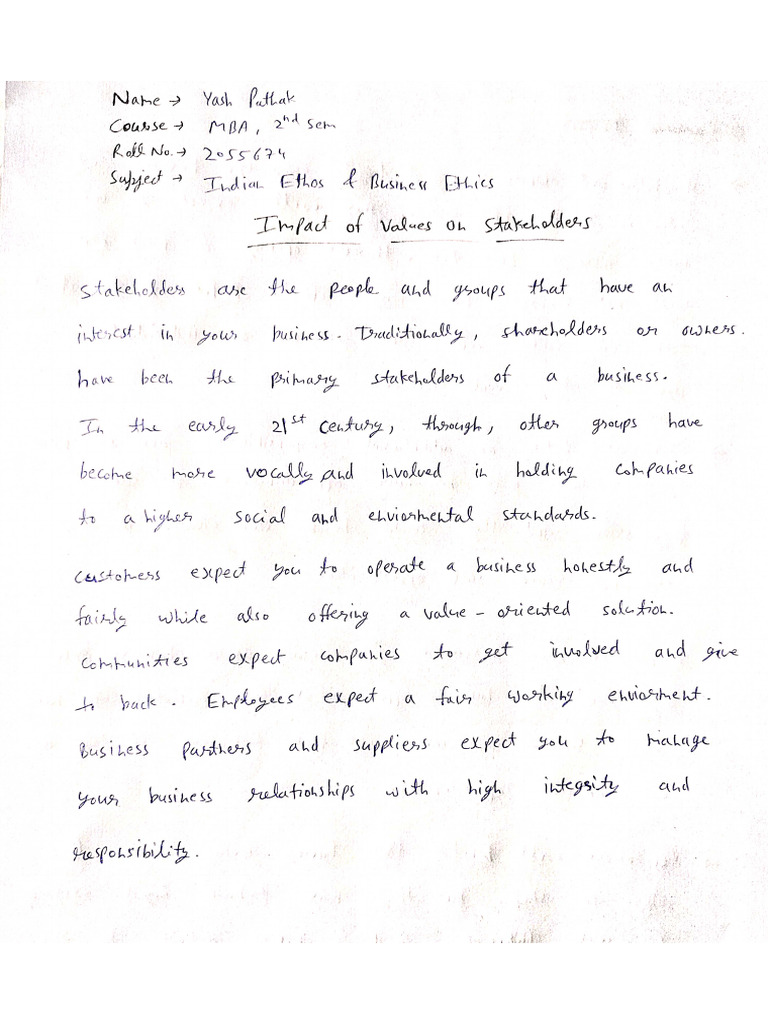 Name → Yash Pathak
Course → MBA, 2nd sem
Roll No. → 2055674
Subject → Indian Ethos & Business Ethics
Impact of values on stakeholders
Stakeholders are the people and groups that have an
interest in your business. Traditionally, shareholders or owners.
have been the primary stakeholders of a business.
In the early 21st century, through, other groups have
become more vocally and involved in holding companies
to a higher social and enviormental standards.
Customers expect you to operate a business honestly and
fairly while also offering a value-oriented solution.
Communities expect companies to get involved and give
to back. Employees expect a fair working enviorment.
Business partners and suppliers expect you to manage
your business relationships with high integrity and
responsibility.